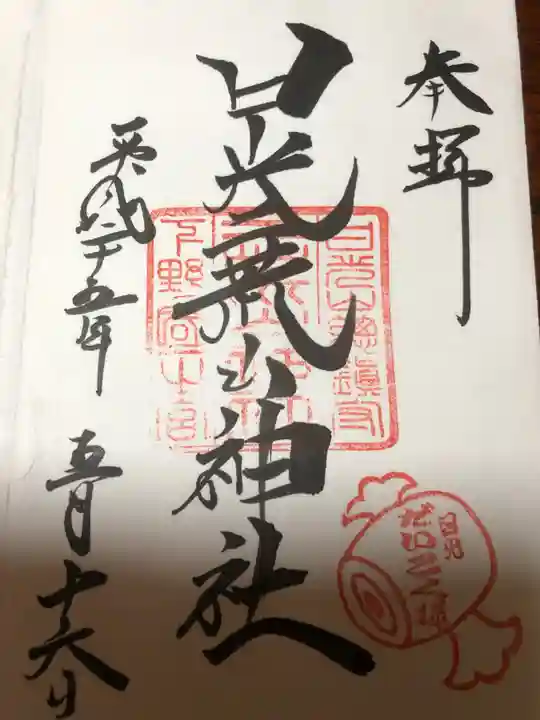 奉拝
日光二荒山神社
平成二十五年
五月十六日
日光山總鎮守
下野國一之宮
日光
だいこく様